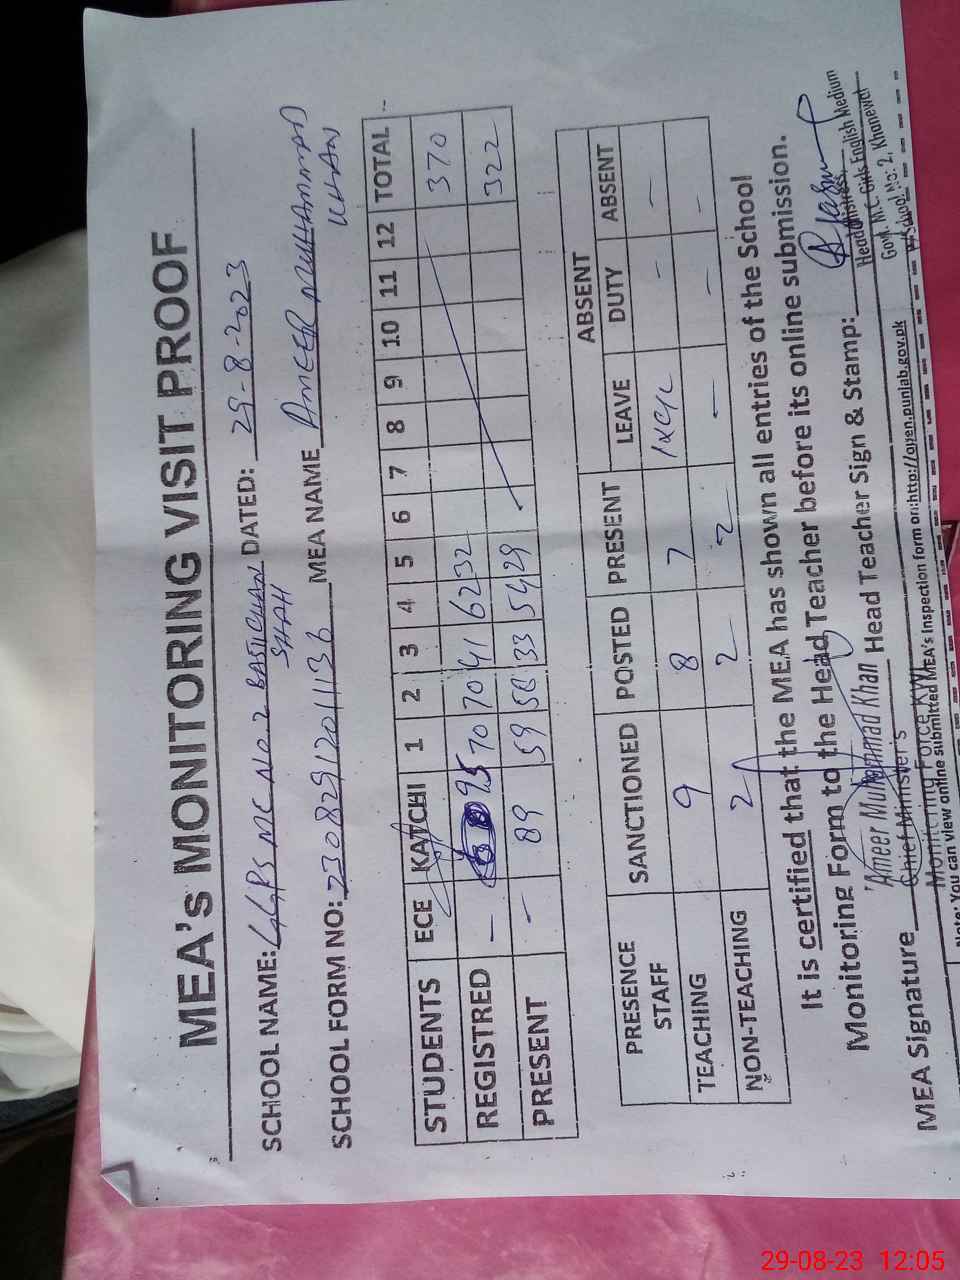 MEA's MONITORING VISIT PROOF
SCHOOL NAME: GGPS MC No. 2 BASTI CHAN SHAH DATED: 29-8-2023
SCHOOL FORM NO: 230829120113 MEA NAME AMEER MUHAMMAD KHAN
STUDENTS ECE KATCHI 1 2 3 4 5 6 7 8 9 10 11 12 TOTAL
REGISTRED - 95 70 70 41 62 32 370
PRESENT - 89 59 58 33 54 29 322
PRESENCE STAFF SANCTIONED POSTED PRESENT ABSENT
LEAVE DUTY ABSENT
TEACHING 9 8 7 - -
NON-TEACHING 2 2 2 - - -
It is certified that the MEA has shown all entries of the School
Monitoring Form to the Head Teacher before its online submission.
MEA Signature Head Teacher Sign & Stamp:
Ameer Muhammad Khan
Chief Minister's
Monitoring Force KWL
Headmistress,
Govt. M.C. Girls English Medium
P/School No: 2, Khanewal
Note: You can view online submitted MEA's Inspection form on:http://open.punjab.gov.pk
29-08-23 12:05